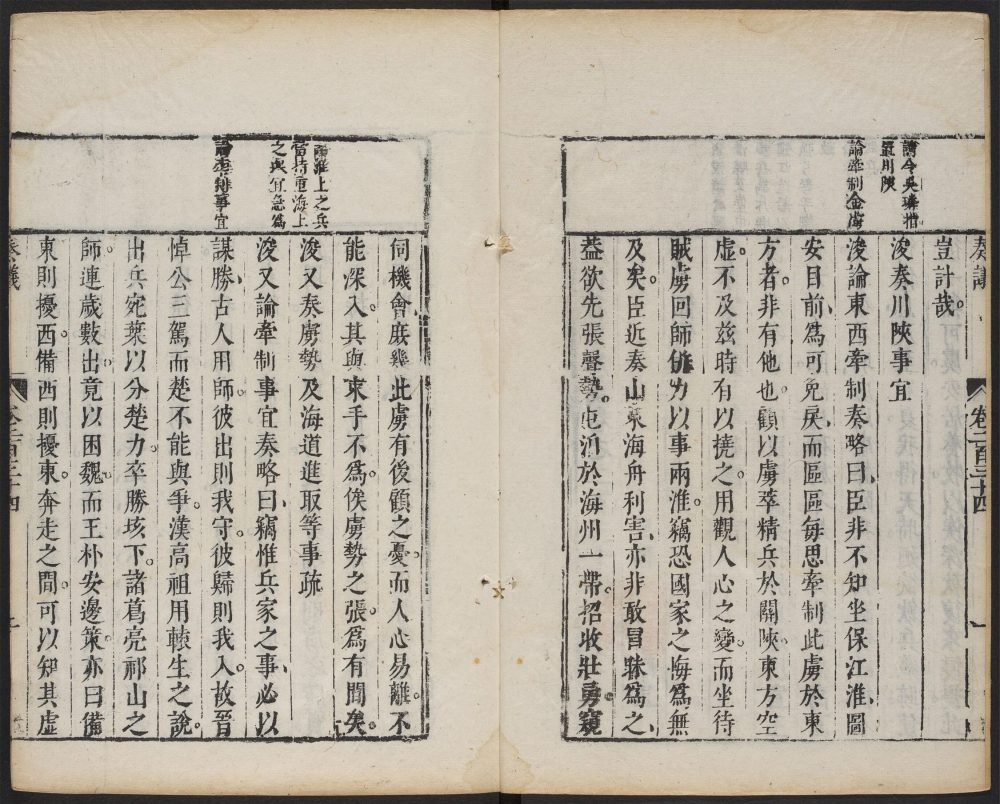 奏議
卷二百三十四
一
請令吳璘措
置川陝
論牽制金虜
豈計哉。
浚奏川陝事宜
浚論東西牽制奏略曰、臣非不知坐保江淮、圖
安目前、爲可免戾、而區區每思牽制此虜於東
方者。非有他也、顧以虜萃精兵於關陝、東方空
虛。不及兹時有以撓之。用觀人心之變。而坐待
賊虜回師併力以事兩淮。竊恐國家之悔爲無
及矣。臣近奏山東海舟利害、亦非敢冒昧爲之、
葢欲先張聲勢。屯泊於海州一帶。招收壯勇。窺
論淮上之兵
當持重海上
之興宜急爲
論牽制事宜
伺機會。庶幾此虜有後顧之憂。而人心易離。不
能深入。其與束手不爲。俟虜勢之張。爲有間矣。
浚又奏虜勢及海道進取等事疏
浚又論牽制事宜奏略曰、竊惟兵家之事、必以
謀勝、古人用師。彼出則我守。彼歸則我入。故晉
悼公三駕而楚不能與爭。漢高祖用轅生之說。
出兵宛葉以分楚力。卒勝垓下。諸葛亮祁山之
師。連歲數出。竟以困魏。而王朴安邊策。亦曰備
東則擾西備西則擾東。奔走之間。可以知其虛
奏議
卷二百三十四